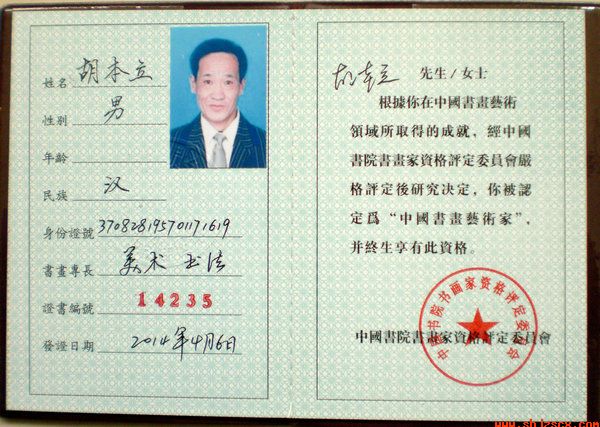 姓名 胡本立
性别 男
年齡
民族 汉
身份證號 370828195701171619
書畫專長 美术 书法
證書編號 14235
發證日期 2014年4月6日
胡本立 先生/女士
根據你在中國書畫藝術
領域所取得的成就，經中國
書院書畫家資格評定委員會嚴
格評定後研究決定，你被認
定爲“中國書畫藝術家”，
并終生享有此資格。
中国书院书画家资格评定委员会
中國書院書畫家資格評定委員會